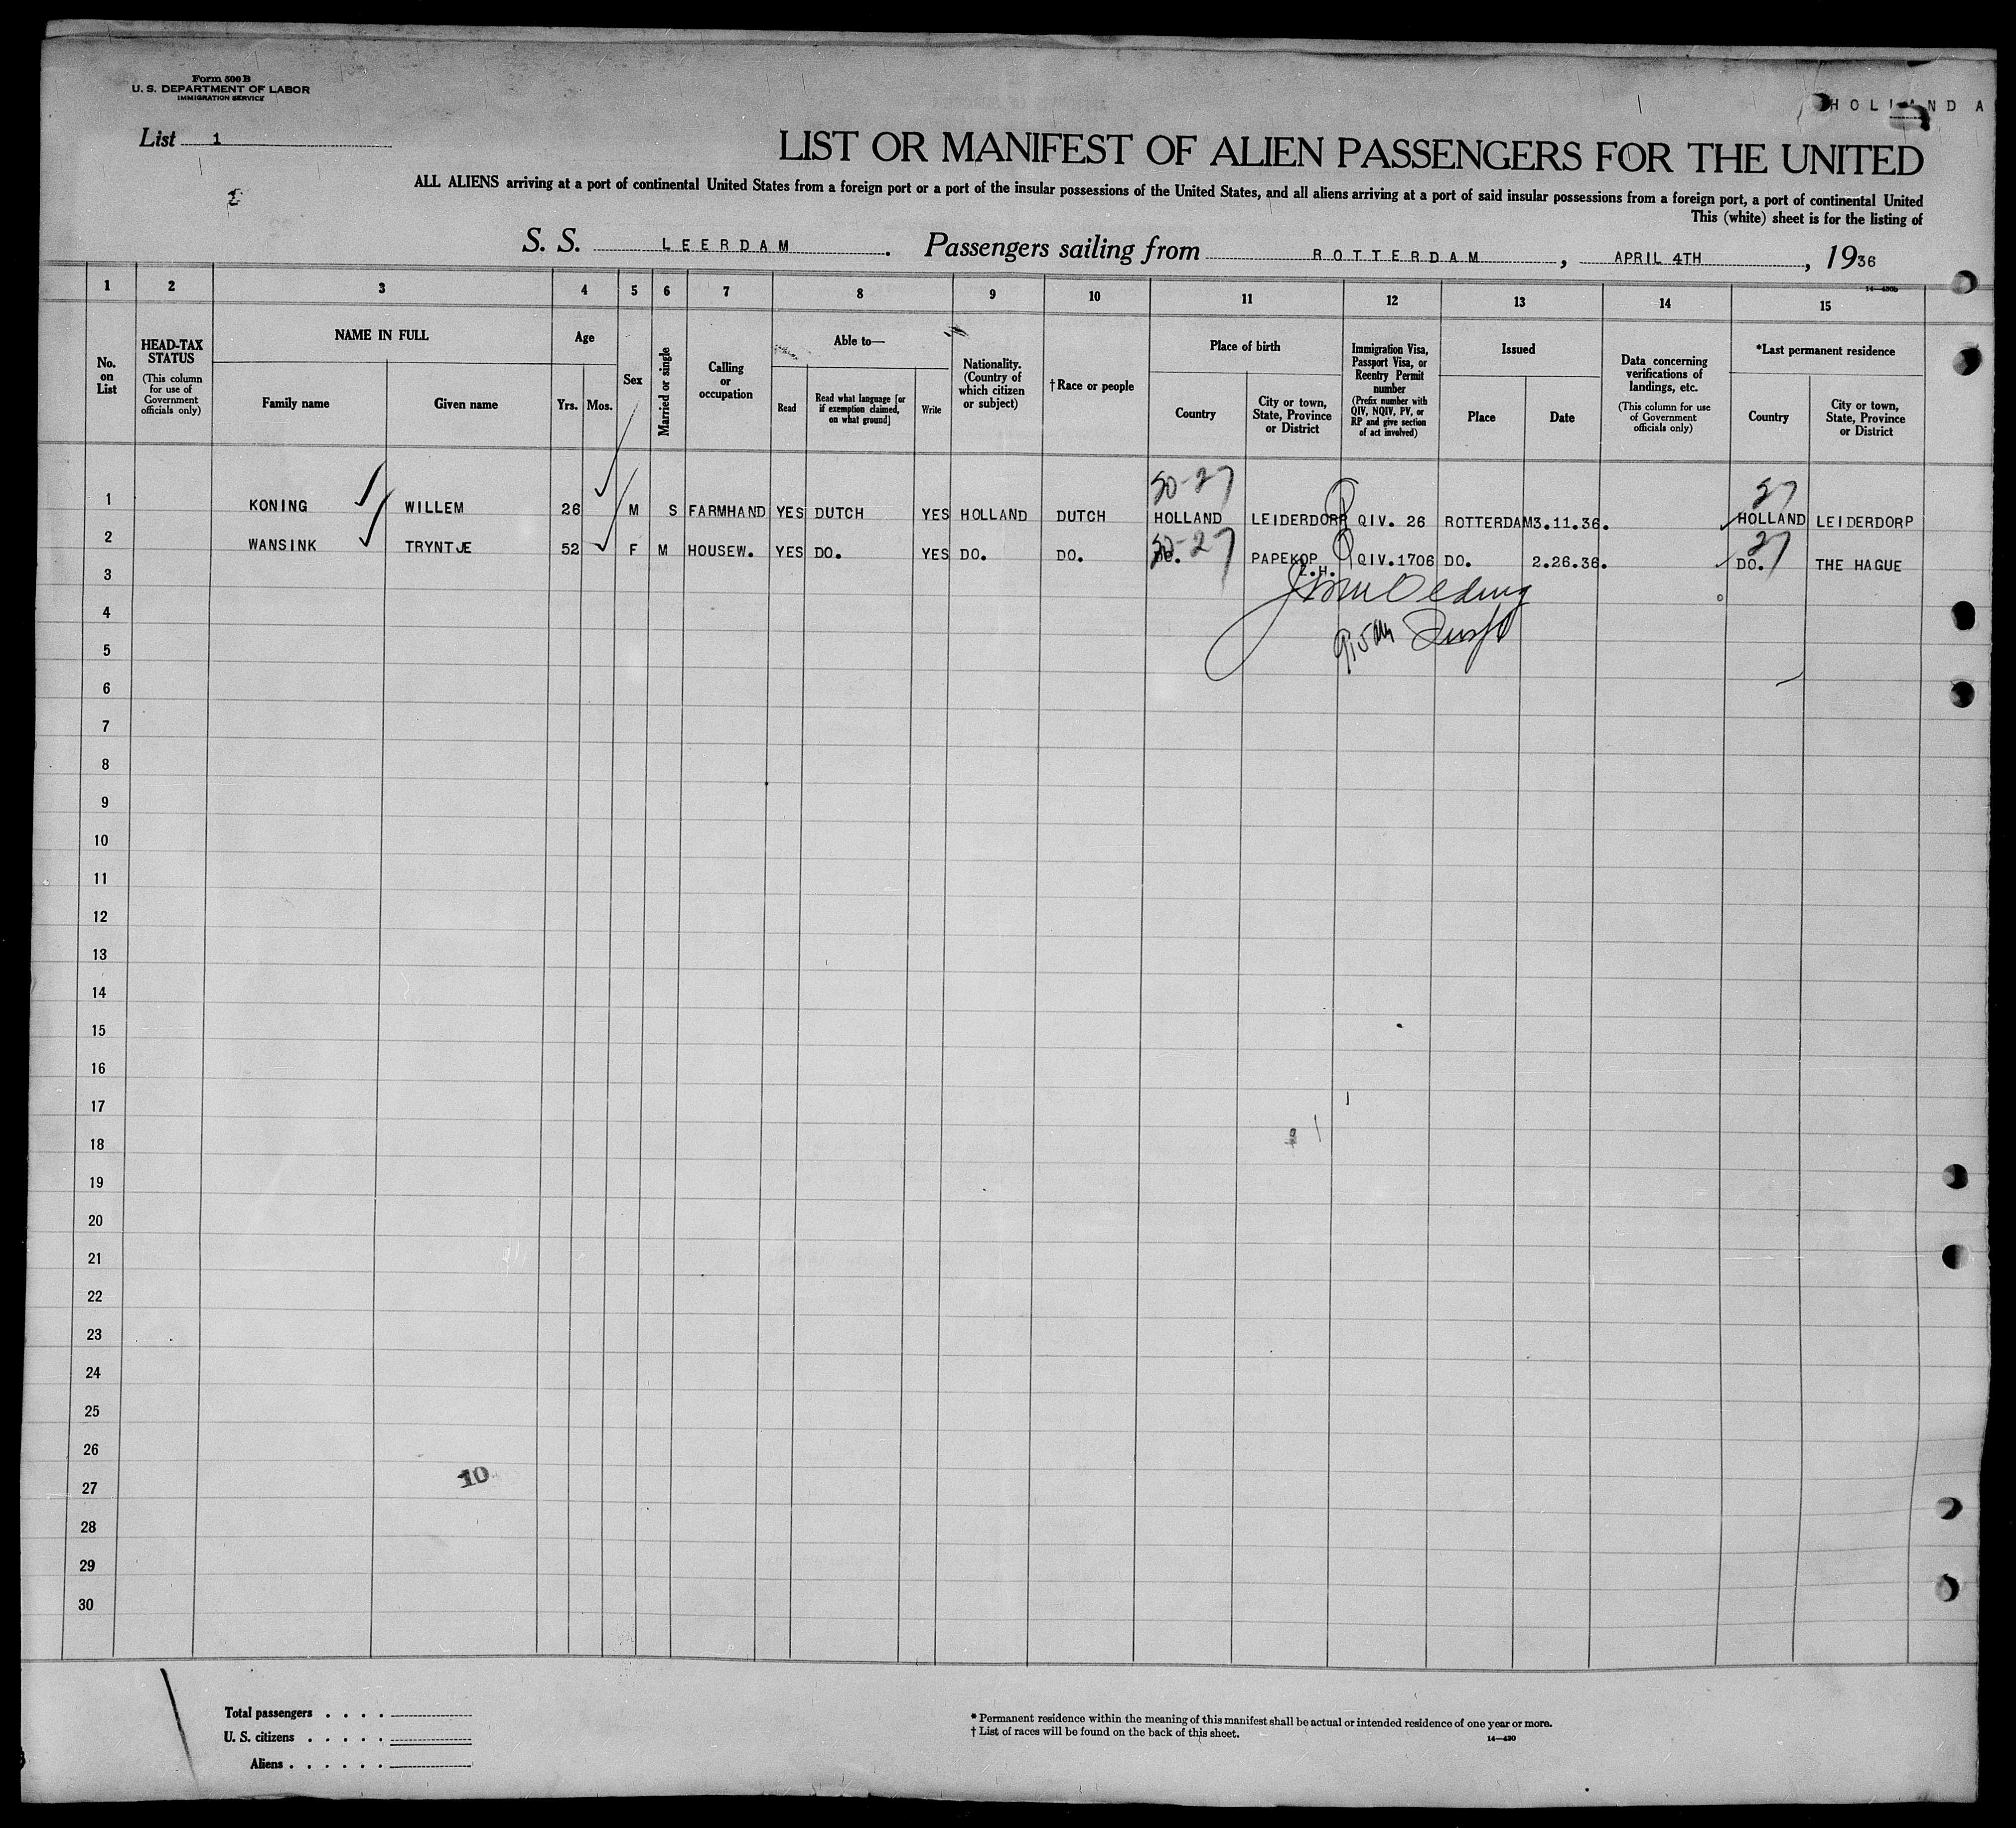 Form 500 B
U. S. DEPARTMENT OF LABOR
IMMIGRATION SERVICE
HOLLAND A
List 1
LIST OR MANIFEST OF ALIEN PASSENGERS FOR THE UNITED
ALL ALIENS arriving at a port of continental United States from a foreign port or a port of the insular possessions of the United States, and all aliens arriving at a port of said insular possessions from a foreign port, a port of continental United
This (white) sheet is for the listing of
S. S. LEERDAM. Passengers sailing from ROTTERDAM, APRIL 4TH, 1936
14—430b
1 2 3 4 5 6 7 8 9 10 11 12 13 14 15
No. on List
HEAD-TAX STATUS
(This column for use of Government officials only)
NAME IN FULL
Family name
Given name
Age
Yrs. Mos.
Sex
Married or single
Calling or occupation
Able to—
Read
Read what language [or if exemption claimed, on what ground]
Write
Nationality. (Country of which citizen or subject)
†Race or people
Place of birth
Country
City or town, State, Province or District
Immigration Visa, Passport Visa, or Reentry Permit number
(Prefix number with QIV, NQIV, PV, or RP and give section of act involved)
Issued
Place
Date
Data concerning verifications of landings, etc.
(This column for use of Government officials only)
*Last permanent residence
Country
City or town, State, Province or District
50-27 27
1 KONING WILLEM 26 M S FARMHAND YES DUTCH YES HOLLAND DUTCH HOLLAND LEIDERDORP QIV. 26 ROTTERDAM 3.11.36. HOLLAND LEIDERDORP
50-27 27
2 WANSINK TRYNTJE 52 F M HOUSEW. YES DO. YES DO. DO. DO. PAPEKOP Z.H. QIV.1706 DO. 2.26.36. DO. THE HAGUE
3
4
5
6
7
8
9
10
11
12
13
14
15
16
17
18
19
20
21
22
23
24
25
26
10
27
28
29
30
Total passengers . . . .
U. S. citizens . . . . .
Aliens . . . . . .
* Permanent residence within the meaning of this manifest shall be actual or intended residence of one year or more.
† List of races will be found on the back of this sheet.
14—430